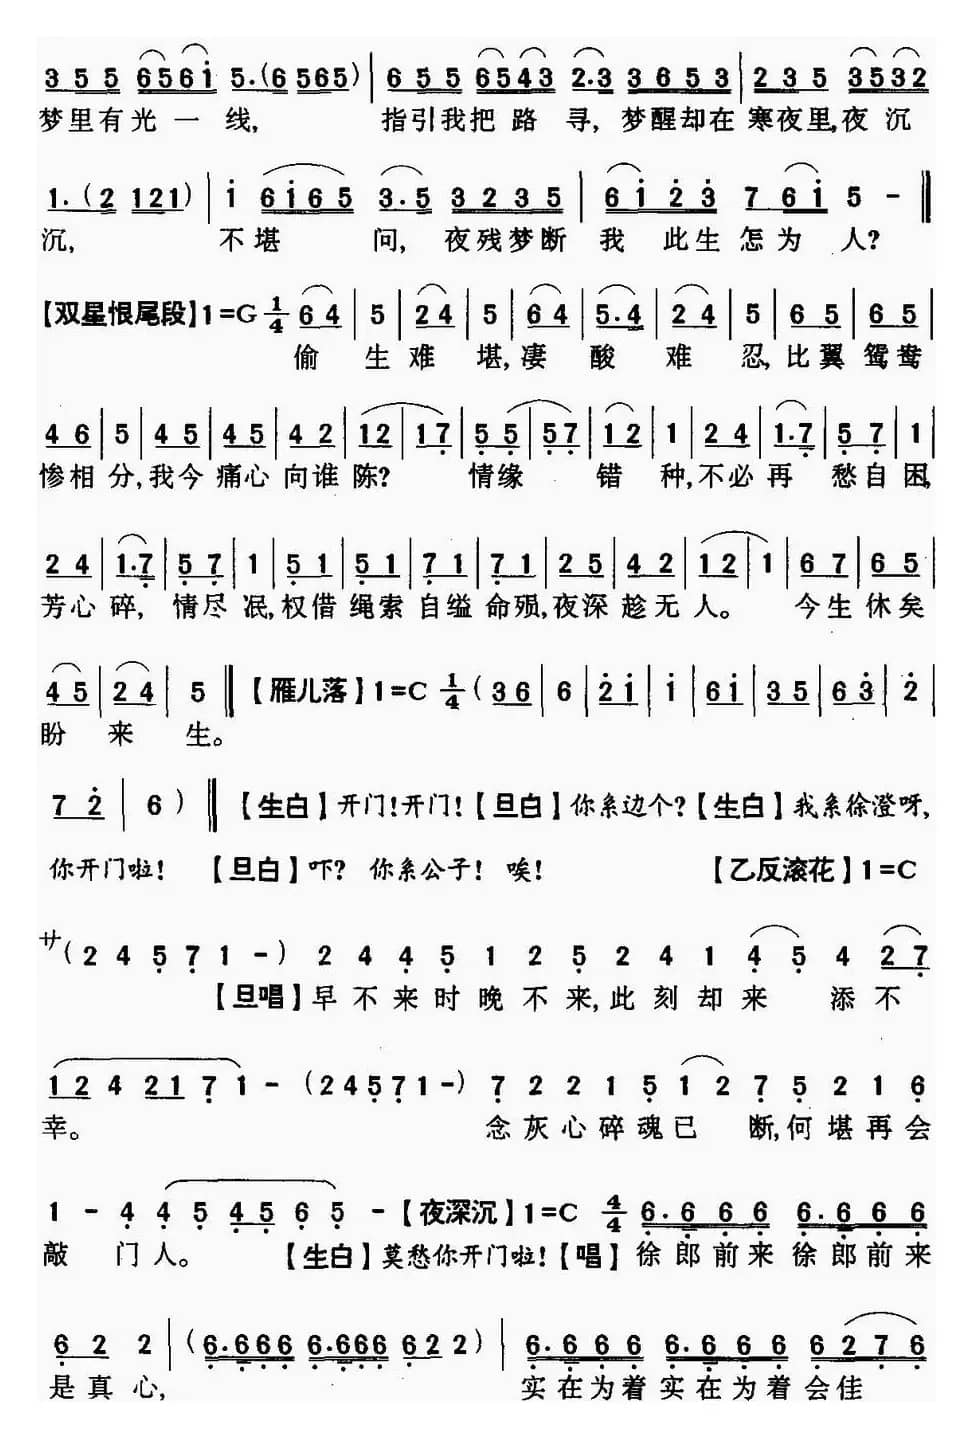 3 5 5 6 5 6 i 5.(6 5 6 5) | 6 5 5 6 5 4 3 2.3 3 6 5 3 | 2 3 5 3 5 3 2
梦里有光一线, 指引我把路寻,梦醒却在寒夜里,夜沉
1.(2 1 2 1) | i 6 i 6 5 3.5 3 2 3 5 | 6 i 2 3 7 6 i 5 - ‖
沉, 不堪问,夜残梦断我此生怎为人?
【双星恨尾段】1=G 1/4 6 4 | 5 | 2 4 | 5 | 6 4 | 5.4 | 2 4 | 5 | 6 5 | 6 5 |
偷生难堪,凄酸难忍,比翼鸳鸯
4 6 | 5 | 4 5 | 4 5 | 4 2 | 1 2 | 1 7 | 5 5 | 5 7 | 1 2 | 1 | 2 4 | 1.7 | 5 7 | 1
惨相分,我今痛心向谁陈?情缘错种,不必再愁自困,
2 4 | 1.7 | 5 7 | 1 | 5 1 | 5 1 | 7 1 | 7 1 | 2 5 | 4 2 | 1 2 | 1 | 6 7 | 6 5 |
芳心碎,情尽泯,权借绳索自缢命殒,夜深趁无人。今生休矣
4 5 | 2 4 | 5 ‖【雁儿落】1=C 1/4 (3 6 | 6 | 2 i | i | 6 i | 3 5 | 6 3 | 2 |
盼来生。
7 2 | 6 ) ‖ 【生白】开门!开门!【旦白】你系边个?【生白】我系徐澄呀,
你开门啦! 【旦白】吓?你系公子!唉! 【乙反滚花】1=C
サ(2 4 5 7 1 -) 2 4 4 5 1 2 5 2 4 1 4 5 4 2 7
【旦唱】早不来时晚不来,此刻却来添不
1 2 4 2 1 7 1 - (2 4 5 7 1 -) 7 2 2 1 5 1 2 7 5 2 1 6
幸。 念灰心碎魂已断,何堪再会
1 - 4 4 5 4 5 6 5 - 【夜深沉】1=C 4/4 6.6 6 6 6.6 6 6
敲门人。【生白】莫愁你开门啦!【唱】徐郎前来徐郎前来
6 2 2 | (6.6 6 6 6.6 6 6 6 2 2) | 6.6 6 6 6.6 6 6 6 2 7 6
是真心, 实在为着实在为着会佳